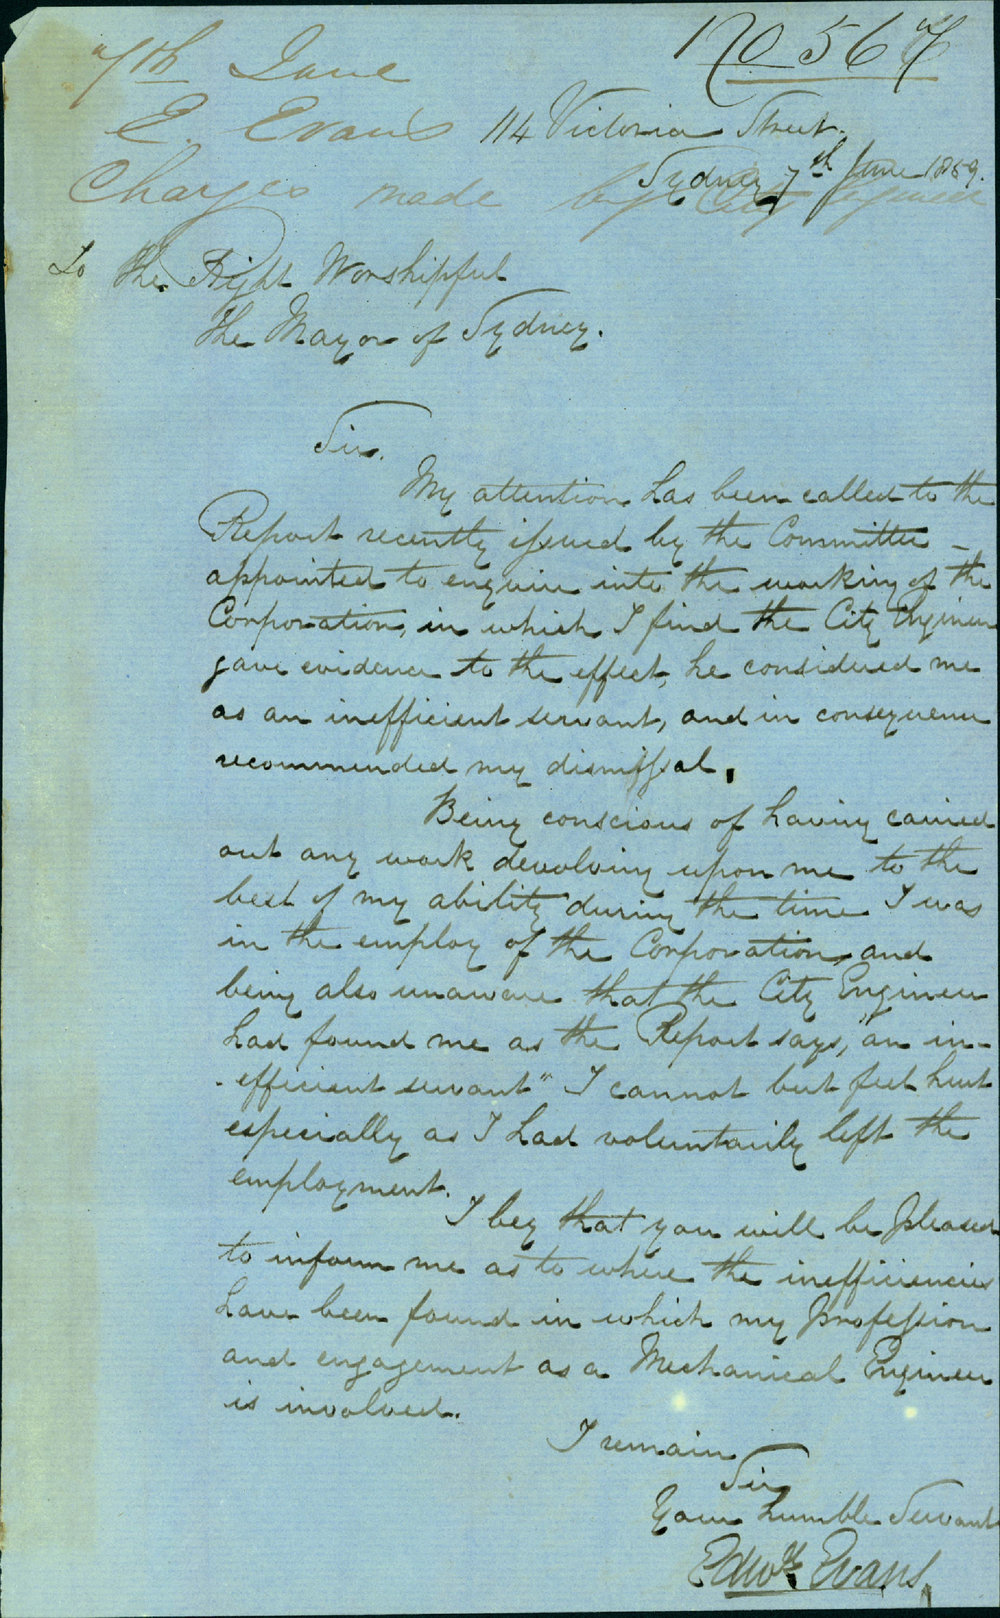 7th June
No 567
E. Evans
114 Victoria Street.
Sydney 7th June 1859.
Charges made by City Engineer
To The Right Worshipful
The Mayor of Sydney.
Sir.
My attention has been called to the
Report recently issued by the Committee
appointed to enquire into the working of the
Corporation, in which I find the City Engineer
gave evidence to the effect, he considered me
as an inefficient servant, and in consequence
recommended my dismissal.
Being conscious of having carried
out any work devolving upon me to the
best of my ability during the time I was
in the employ of the Corporation, and
being also unaware that the City Engineer
had found me as the Report says, "an in-
-efficient servant" I cannot but feel hurt
especially as I had voluntarily left the
employment.
I beg that you will be pleased
to inform me as to where the inefficiencies
have been found in which my profession
and engagement as a Mechanical Engineer
is involved.
I remain
Sir
Your humble Servant
Edwd Evans